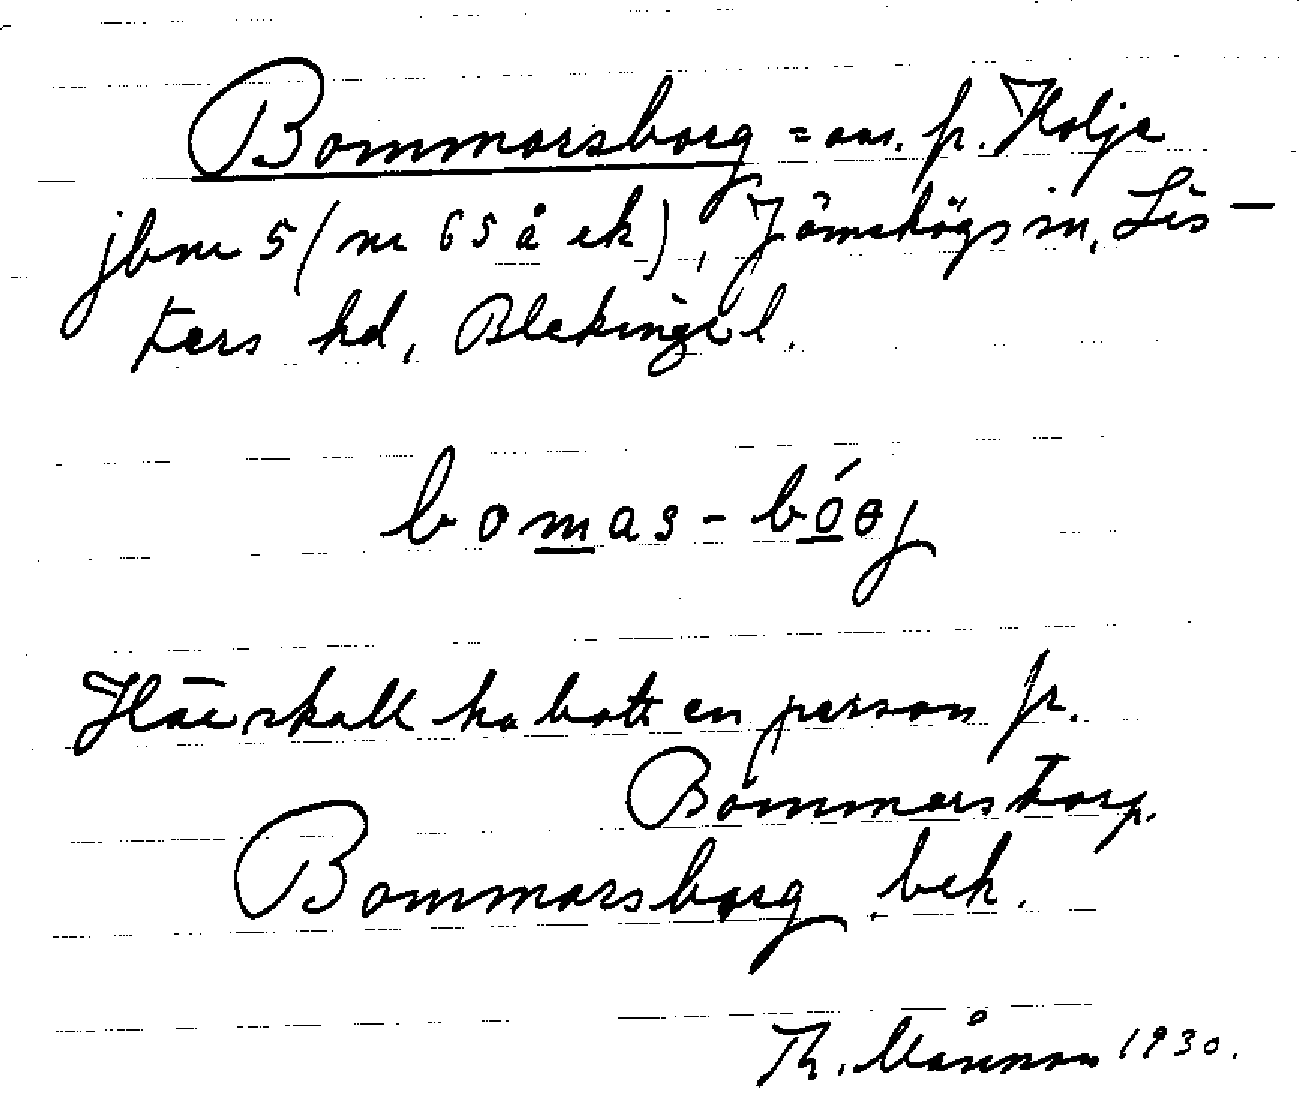 Bommarsborg = avs. fr. Holje
jbnr 5 (nr 65 å ek), Jämshögs sn, Lis-
ters hd, Blekinge l.
bomas-bóəj
Här skall ha bott en person fr.
Bommerstorp.
Bommarsborg bek.
Th. Månsson 1930.